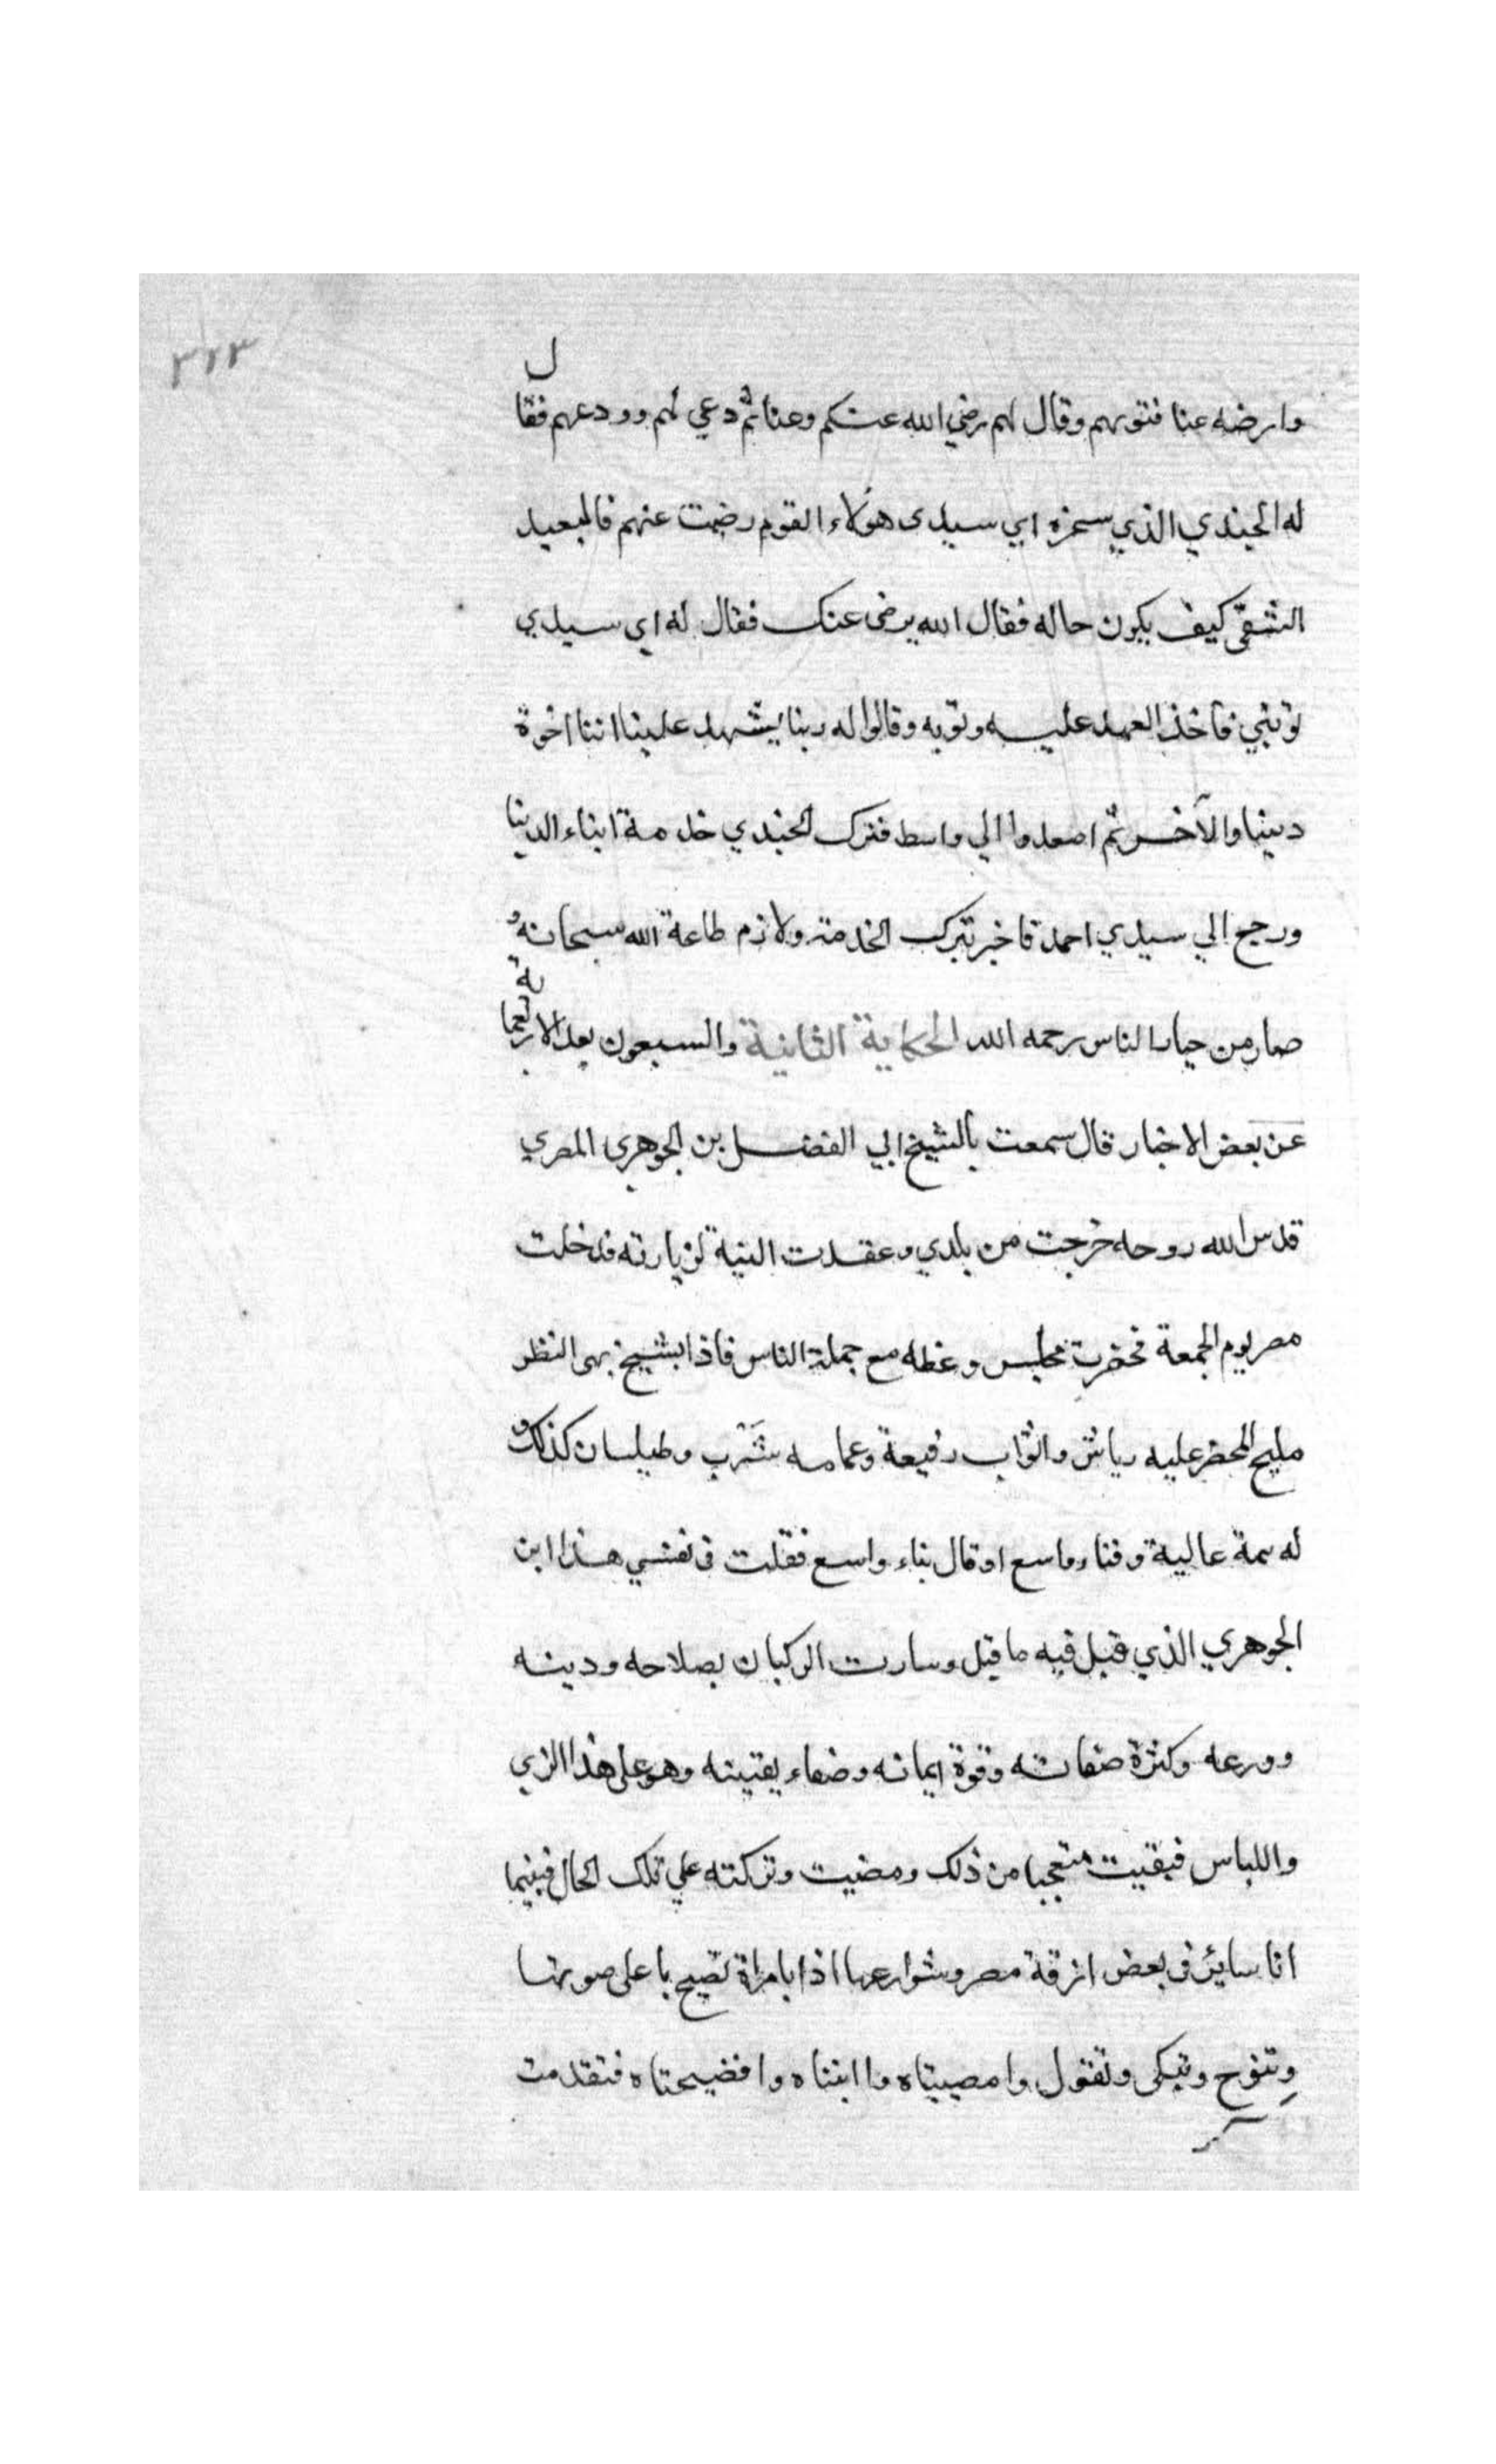 ٣٢٣
وارضه عنا فتوبهم وقال لهم رضي الله عنكم وعنا ثم دعي لهم وودعهم فقال
له الجندي الذي سخره اي سيدى هؤلاء القوم رضيت عنهم فالبعيد
الشقيّ كيف يكون حاله فقال الله يرضى عنك فقال له اي سيدي
توبني فاخذ العهد عليه وتوبه وقالوا له ربنا يشهد علينا اننا اخوة
دينيا والآخر ثم اصعدوا الي واسط فترك الجندي خدمة ابناء الدينا
ورجع الي سيدي احمد فاخبر بترك الخدمة ولازم طاعة الله سبحانه و
صار من خيار الناس رحمه الله الحكاية الثانية والسبعون بعد الاربعماية
عن بعض الاخيار قال سمعت بالشيخ ابي الفضل بن الجوهرى المصري
قدس الله روحه خرجت من بلدي وعقدت النية لزيارته فدخلت
مصر يوم الجمعة فحضرت مجلس وعظه مع جملة الناس فاذا بشيخ بهى النظر
مليح المحضر عليه رياش واثواب رفيعة وعمامه شَرْب وطيلسان كذلك و
له سمة عالية وفناء واسع او قال بناء واسع فقلت فى نفسي هذا ابن
الجوهري الذي قيل فيه ما قيل وسارت الركبان بصلاحه ودينه
وورعه وكثرة صفاته وقوة ايمانه وصفاء يقينه وهو على هذا الزي
واللباس فبقيت متعجبا من ذلك ومضيت وتركته علي تلك الحال فبينما
انا ساير فى بعض ازقة مصر وشوارعها اذا بامراة تصيح باعلى صوتها
وتنوح وتبكى وتقول وامصيبتاه واابنتاه وافضيحتاه فتقدمت